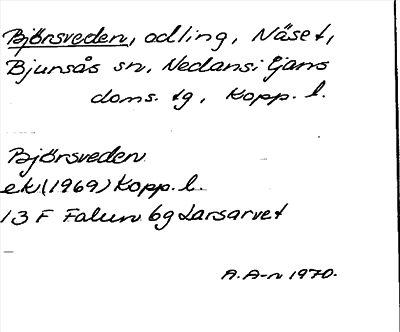 Björsveden, odling, Näset,
Bjursås sn. Nedansiljans
doms. tg, Kopp. l.
Björsveden
ek (1969) Kopp. l.
13 F Falun 6g Larsarvet
A. A-n 1970.